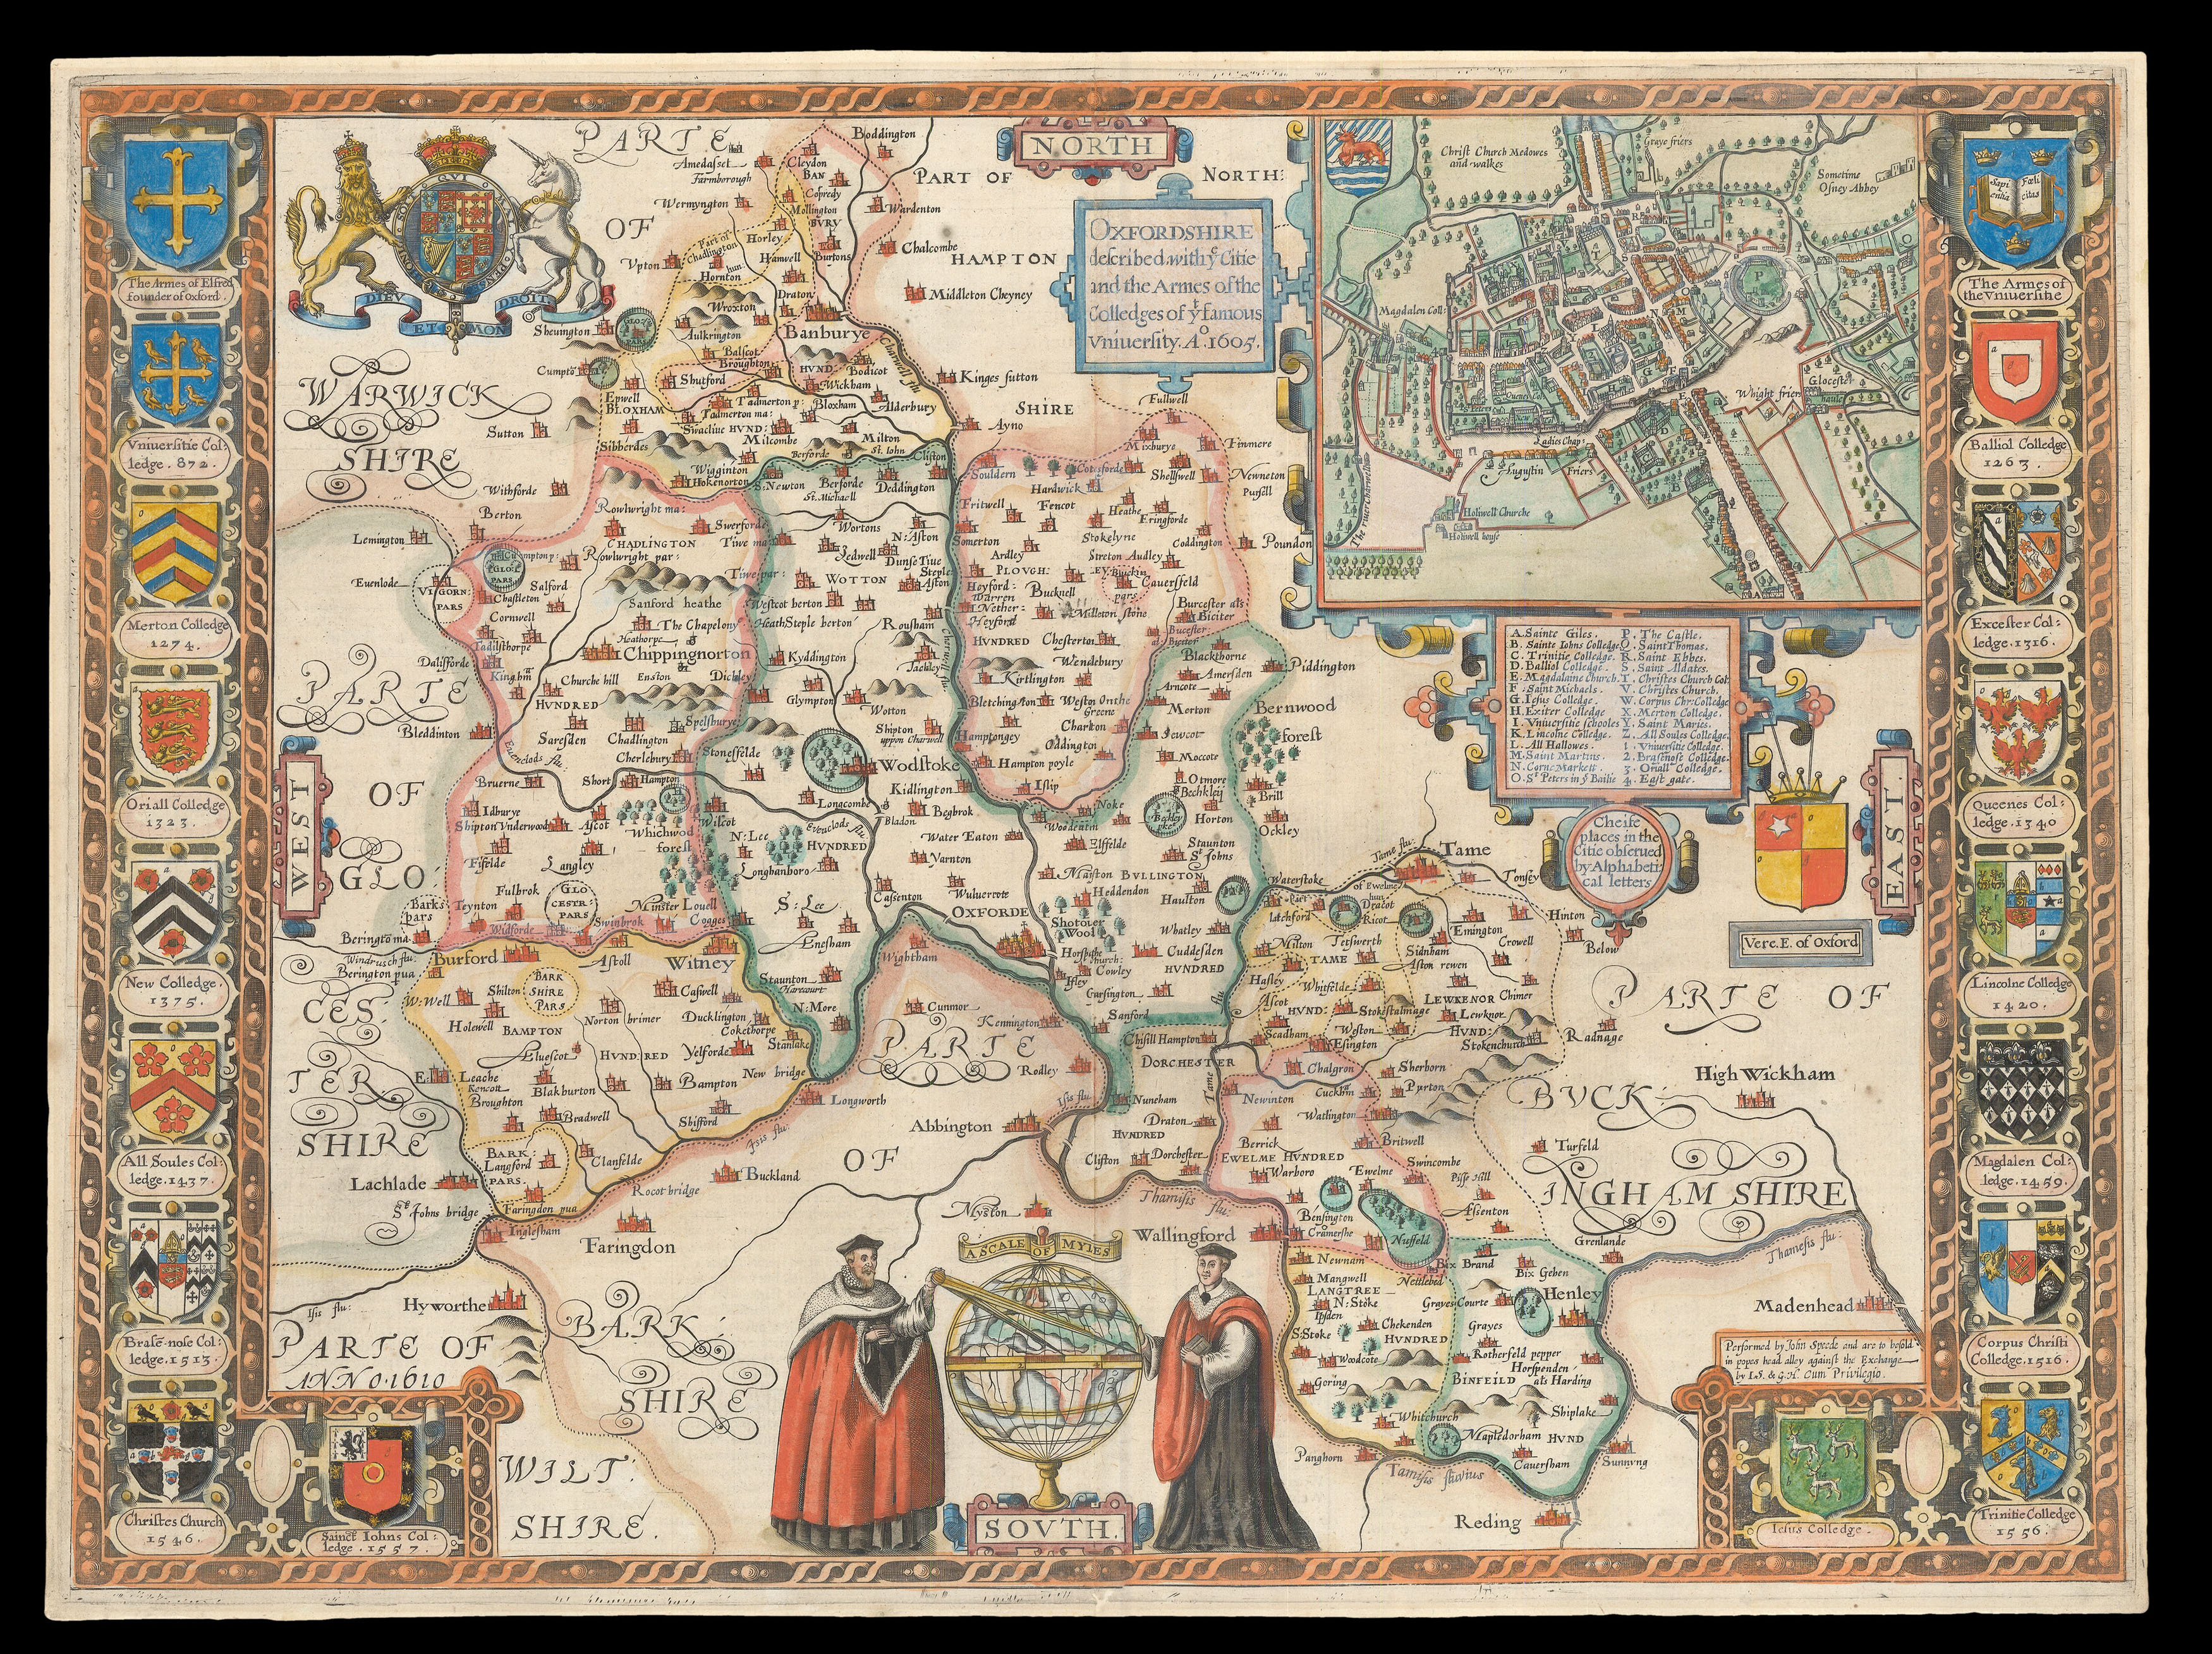 NORTH
OXFORDSHIRE
described with yᵉ Citie
and the Armes of the
Colledges of yᵗ famous
Vniuersity. Aº. 1605.
QVI
DIEV
ET
MON
DROIT
The Armes of Elfred
founder of oxford.
Vniuersitie Col:
ledge. 872.
Merton Colledge
1274.
Oriall Colledge
1323.
New Colledge.
1375.
All Soules Col:
ledge. 1437.
Brasē-nose Col:
ledge. 1513.
Christes Church
1546.
Sainct Iohns Col:
ledge. 1557.
Sapi
entia
Fœli
citas
The Armes of
the Vniuersitie
Balliol Colledge
1263.
Excester Col:
ledge. 1316.
Queenes Col:
ledge. 1340
Lincolne Colledge
1420.
Magdalen Col:
ledge. 1459.
Corpus Christi
Colledge. 1516.
Trinitie Colledge
1556.
Iesus Colledge.
Christ Church Medowes
and walkes
Graye friers
Sometime
Osney Abbey
Magdalen Coll:
Whight friers
Glocester
haule
Queenes Col
S. Peters
Ladies Chap:
Augustin Friers
Holiwell Churche
Holiwell house
The riuer Charwell
A. Sainte Giles.
B. Sainte Iohns Colledge
C. Trinitie Colledge.
D. Balliol Colledge.
E. Magdalaine Church.
F. Saint Michaels.
G. Iesus Colledge.
H. Exiter Colledge
I. Vniuersitie schooles
K. Lincolne Colledge.
L. All Hallowes.
M. Saint Martins.
N. Corne Markett
O. Sᵗ Peters in yᵉ Bailie
P. The Castle.
Q. Saint Thomas.
R. Saint Ebbes.
S. Saint Aldates.
T. Christes Church Col:
V. Christes Church.
W. Corpus Chr: Colledge
X. Merton Colledge.
Y. Saint Maries.
Z. All Soules Colledge.
1. Vniuersitie Colledge.
2. Brasnose Colledge.
3. Oriall Colledge.
4. East gate.
Cheife
places in the
Citie obserued
by Alphabeti
cal letters
Vere. E. of Oxford
EAST
WEST
SOVTH.
PARTE
OF
WARWICK
SHIRE
PART OF
NORTH:
HAMPTON
SHIRE
PARTE
OF
GLO
CES:
TER
SHIRE
PARTE OF
BVCK:
INGHAM SHIRE
PARTE
OF
BARK:
SHIRE
PARTE OF
WILT:
SHIRE.
ANNO. 1610
A SCALE OF MYLES
Performed by John Speede and are to be sold
in popes head alley against the Exchange
by I.S. & G.H. Cum Privilegio.
Boddington
Amedasset
Farmborough
Cleydon
BAN
Copredy
Wermyngton
Mollington
BVRY
Wardenton
Part of
Chadlington
hun:
Horley
Chalcombe
Vpton
Hornton
Hamwell
Burtons
Draton
Middleton Cheyney
Wroxton
Sheuington
GLOC
PARS
Aulkrington
Banburye
Charwell flu
Balscot
Broughton
HVND:
Bodicot
Cumpto
Shutford
Wickham
Kinges sutton
Epwell
BLOXHAM
Tadmerton p:
Tadmerton ma:
Bloxham
Alderbury
Fullwell
Sutton
Swacliue
HVND:
Milcombe
Milton
Ayno
Sibberdes
Berforde
St. Iohn
Clifton
Mixburye
Finmere
Wigginton
Hokenorton
S. Newton
Berforde
St. Michaell
Deddington
Souldern
Cotesforde
Shellswell
Newneton
Pursell
Withforde
Hardwick
Berton
Rowlwright ma:
Swerforde
Fritwell
Fencot
Heathe
Fringforde
Lemington
CHADLINGTON
Tiwe ma:
Wortons
N: Aston
Somerton
Stokelyne
Coddington
Poundon
GLOC
PARS
Rowlwright par:
Ledwell
Dunse Tiue
Ardley
Streton Audley
Euenlode
Salford
Tiwe par:
WOTTON
Steple
Aston
PLOVGH:
Heyford:
Warren
Bucknell
Cauersfeld
VIGORN:
PARS
Chastleton
Sanford heathe
Westcot berton
Nether:
Heyford
Milleton stone
Burcester als
Biciter
Cornwell
The Chapelony
Heath
Steple berton
Rousham
Heathorpe
HVNDRED
Chesterton
Tadilsthorpe
Chippingnorton
Dalisforde
Kyddington
Tackley
Wendebury
Blackthorne
Piddington
Kinghm
Churche hill
Enston
Dickley
Kirtlington
Amersden
Arncote
HVNDRED
Glympton
Wotton
Bletchington
Weston On the
Greene
Merton
Bernwood
forest
Bleddinton
Saresden
Chadlington
Spelsburye
Shipton
uppon Charwell
Hamptongey
Charton
Oddington
Fewcot
Euenlods flu:
Cherlebury
Stonesfelde
Wodstoke
Hampton poyle
Moccote
Bruerne
Short Hampton
Kidlington
Islip
Otmore
Bechkley
Idburye
Longcombe
Begbrok
Noke
Beckley
pke
Brill
Shipton Vnderwood
Ascot
Wilcot
Bladon
Woodentin
Horton
Ockley
Whichwod
forest
N: Lee
Euenlods flu
HVNDRED
Water Eaton
Elsfelde
Staunton
Sᵗ Johns
Tame flu
Tame
Fifelde
Langley
Longhanboro
Yarnton
Maiston
BVLLINGTON
Waterstoke
Tousey
Fulbrok
GLO
CESTR:
PARS
Minster Louell
S: Lee
Cassenton
Wuluercote
OXFORDE
Heddendon
Haulton
Latchford
Dracot
Ricot
Hinton
Barks
pars
Teynton
Widforde
Swinbrok
Cogges
Enesham
Shotouer
Wood
Whatley
Emington
Berington ma
Windrusch flu
Berington pua
Burford
Astoll
Witney
Wightham
Horspathe
Cuddesden
Milton
Tetsworth
Sidnham
Crowell
Below
BARK
SHIRE
PARS
Staunton
Harcourt
Iffley
Cowley
HVNDRED
Hasley
TAME
Aston rewen
W: Well
Shilton
Caswell
N: More
Cunmor
Garsington
Ascot
Whitfelde
LEWKENOR
Chimer
Holewell
BAMPTON
Norton brimer
Ducklington
Cokethorpe
Kennington
Sanford
HVND:
Stokestalmage
Lewknor
Aluescot
HVNDRED
Yelforde
Stanlake
Chisill Hampton
Scadham
Weston
HVND:
Stokenchurch
Radnage
Leache
Kencott
Broughton
Blakburton
Bampton
New bridge
Rodley
DORCHESTER
Esington
Chalgron
Sherborn
High Wickham
Bradwell
Shifford
Longworth
Isis flu
Nuneham
Newinton
Cuckhm
Pyrton
Watlington
BARK:
Langford
PARS.
Clanfelde
Isis flu:
Abbington
Draton
HVNDRED
Tame
Berrick
Britwell
Turfeld
Lachlade
Buckland
Clifton
Dorchester
EWELME HVNDRED
Warboro
Ewelme
Swincombe
Sᵗ Johns bridge
Faringdon pua
Rocot bridge
Thamisis flu:
Bensington
Pisse Hill
Assenton
Inglesham
Faringdon
Myston
Wallingford
Cromershe
Nuffeld
Grenlande
Thamesis flu:
Newnam
Nettlebed
Bix Brand
Bix Geben
Isis flu:
Hyworthe
Mangwell
LANGTREE
N: Stoke
Ipsden
Grayes Courte
Henley
Madenhead
S: Stoke
Chekenden
HVNDRED
Grayes
Woodcote
Rotherfeld pepper
Horspenden
als Harding
Goring
BINFEILD
Whitchurch
Shiplake
Panghorn
Mapledorham
HVND
Tamisis fluvius
Caversham
Sunnyng
Reding